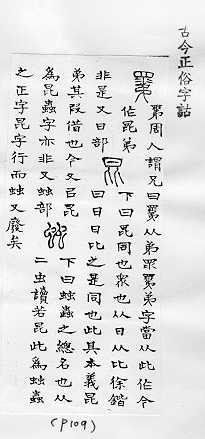 古今正俗字詁
𥊽周人謂兄曰𥊽从弟眔𥊽弟字當从此作今
作昆弟
非是又日部
下曰昆同也衆也从日从比徐鍇
曰日日比之是同也此其本義昆
弟其叚借也今又㠯昆
為昆蟲字亦非又䖵部
下曰䖵蟲之總名也从
二虫讀若昆此為䖵蟲
之正字昆字行而䖵又廢矣
(P109)